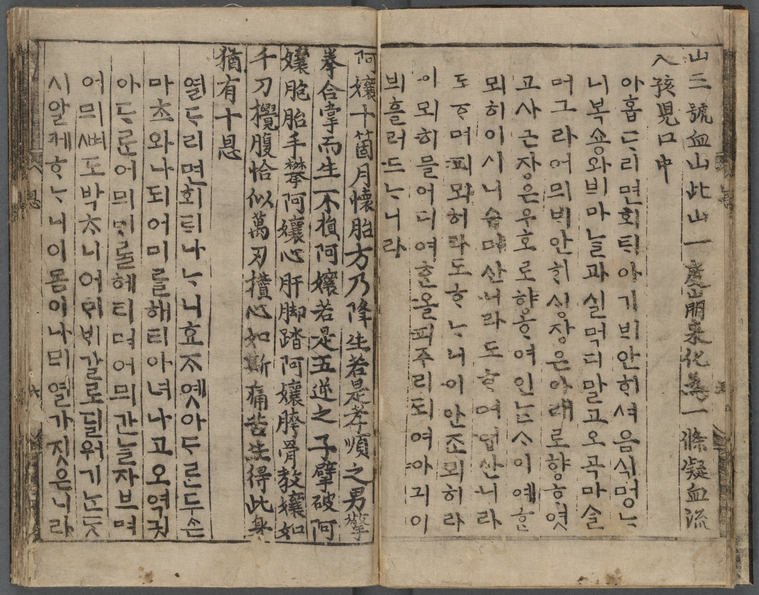 山三號血山此山一度崩來化爲一條凝血流
入孩兒口中
아홉ᄃᆞ리면회ᄐᆡ아기ᄇᆡ안해셔음식먹ᄂᆞ
니복숑와비마ᄂᆞᆯ과실먹디말고오곡마슬
머그라어믜ᄇᆡ안ᄒᆡ싱장은아래로향ᄒᆞ엿
고사근장은우흐로향ᄒᆞ여인ᄂᆞᆫᄉᆞ이예ᄒᆞᆫ
뫼히이시니슈미산니라도ᄒᆞ며업산니라
도ᄒᆞ며피뫼히라도ᄒᆞᄂᆞ니이안죤뫼히라
이뫼히믈어디여ᄒᆞᆫ올피주리되여아기이
븨흘러드ᄂᆞ니라
阿孃十箇月懷胎方乃降生若是孝順之男擎
拳合掌而生不損阿孃若是五逆之子擘破阿
孃胞胎手攀阿孃心肝脚踏阿孃胯骨教孃如
千刀攪腹恰似萬刃攢心如斯痛苦生得此身
猶有十恩
열ᄃᆞ리면회ᄐᆡ나ᄂᆞ니효ᄌᆞ옛아ᄃᆞᄅᆞᆫ두손
마초와나되어미ᄅᆞᆯ해티아녀나고오역앳
아ᄃᆞᄅᆞᆫ어믜ᄐᆡᄅᆞᆯ헤티며어믜간ᄂᆞᆯ자ᄇᆞ며
어믜ᄲᅧ도박ᄎᆞ니어믜ᄇᆡ갈로딜워기ᄂᆞᆫᄃᆞᆺ
시알ᄑᆞ게ᄒᆞᄂᆞ니이몸이나믜열가짓은니라
恩